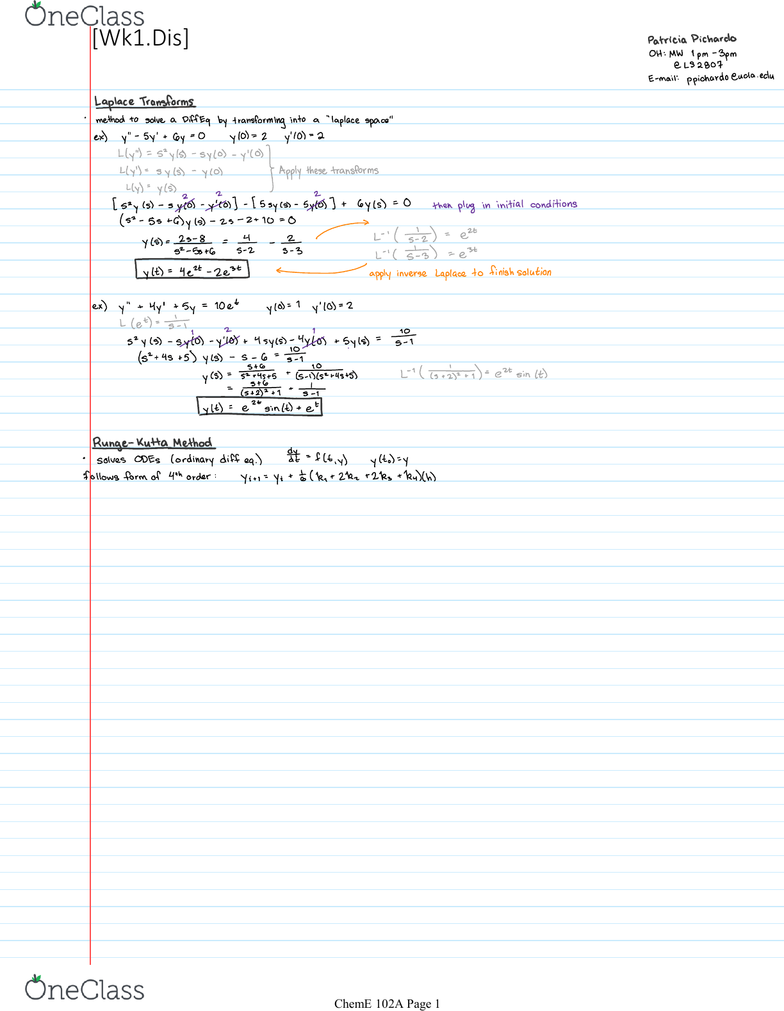 OneClass
[Wk1.Dis]
Patricia Pichardo
OH: MW 1pm - 3pm
@ LS2807
E-mail: ppichardo@ucla.edu
Laplace Transforms
· method to solve a DiffEq by transforming into a "laplace space"
ex) y" - 5y' + 6y = 0 y(0) = 2 y'(0) = 2
L(y") = s²y(s) - sy(0) - y'(0)
L(y') = sy(s) - y(0) } Apply these transforms
L(y) = y(s)
[s²y(s) - sy(0) - y'(0)] - [5sy(s) - 5y(0)] + 6y(s) = 0 then plug in initial conditions
2 2 2
(s² - 5s + 6)y(s) - 2s - 2 + 10 = 0
y(s) = 2s-8 / s²-5s+6 = 4 / s-2 - 2 / s-3
L⁻¹(1 / s-2) = e²ᵗ
L⁻¹(1 / s-3) = e³ᵗ
y(t) = 4e²ᵗ - 2e³ᵗ
apply inverse Laplace to finish solution
ex) y" + 4y' + 5y = 10eᵗ y(0) = 1 y'(0) = 2
L(eᵗ) = 1 / s-1
s²y(s) - sy(0) - y'(0) + 4sy(s) - 4y(0) + 5y(s) = 10 / s-1
1 2 1
(s² + 4s + 5) y(s) - s - 6 = 10 / s-1
y(s) = s+6 / s²+4s+5 + 10 / (s-1)(s²+4s+5)
L⁻¹(1 / (s+2)²+1) = e²ᵗ sin(t)
= s+6 / (s+2)²+1 + 1 / s-1
y(t) = e²ᵗ sin(t) + eᵗ
Runge-Kutta Method
· solves ODEs (ordinary diff eq.) dy/dt = f(t,y) y(t₀) = y
follows form of 4th order: yᵢ₊₁ = yᵢ + 1/6 (k₁ + 2k₂ + 2k₃ + k₄)(h)
OneClass
ChemE 102A Page 1